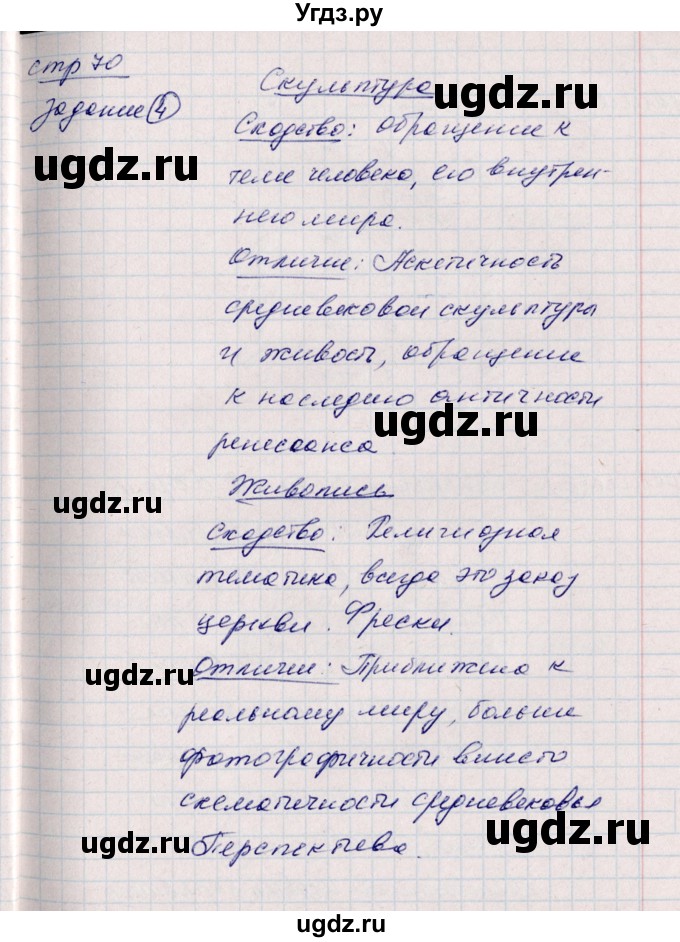 Угдз.ру
стр 70
Задание 4
Скульптура
ugdz.ru
Сходство: обращение к
ugdz.ru
теме человека, его внутрен-
него мира.
Отличие: Аскетичность
средневековой скульптуры
и живость, обращение
к наследию античности
ugdz.ru
ренессанса
Живопись
ugdz.ru
Сходство: Религиозная
тематика, всегда это заказ
церкви. Фрески.
ugdz.ru
Отличие: Приближено к
реальному миру, больше
фотографичности вместо
схематичности средневековья
ugdz.ru
ugdz.ru
Перспектива.
ugdz.ru